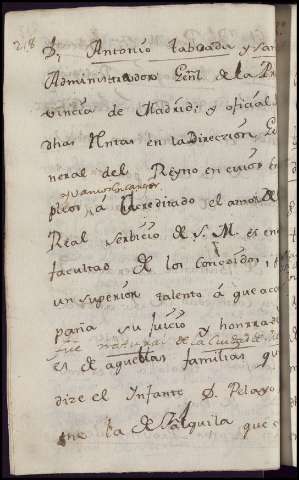 218
D. Antonio Taboada y San
Administrador Genl. de la Pro
vincia de Madrid; y oficial
dhas Rentas en la Direccion Ge
neral del Reyno en cuios em
y varios encargos
pleos à acreditado el amor al
Real serbicio de S. M. es en
facultad de los conocidos,
un superior talento à que aco
paña su juicio y honrrade
fue natural de la ciudad de
es de aquellas familias que
dize el Ynfante D. Pelayo
de Aguila que